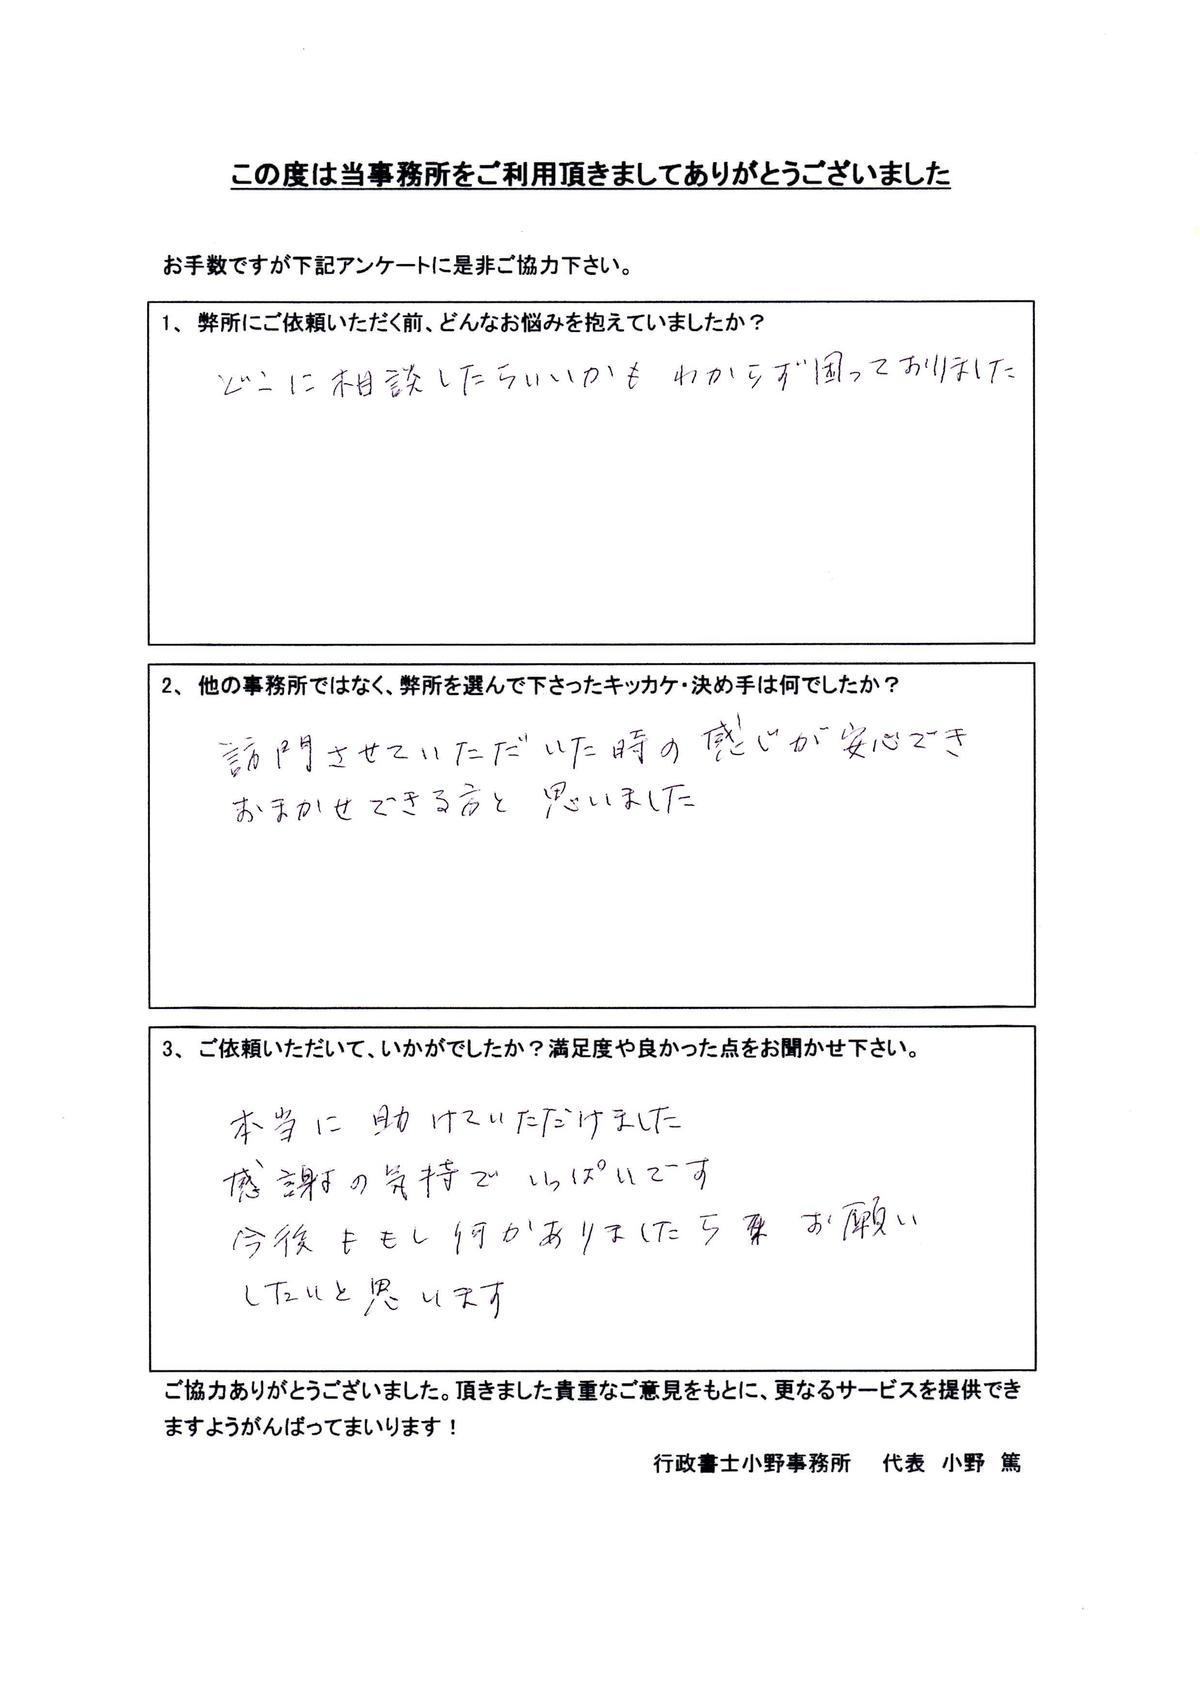 この度は当事務所をご利用頂きましてありがとうございました
お手数ですが下記アンケートに是非ご協力下さい。
1、 弊所にご依頼いただく前、どんなお悩みを抱えていましたか？
どこに相談したらいいかも わからず困っておりました
2、 他の事務所ではなく、弊所を選んで下さったキッカケ・決め手は何でしたか？
訪門させていただいた時の感じが安心でき
おまかせできる方と思いました
3、 ご依頼いただいて、いかがでしたか？満足度や良かった点をお聞かせ下さい。
本当に助けていただけました
感謝の気持でいっぱいです
今後ももし何かありましたら お願い
したいと思います
ご協力ありがとうございました。頂きました貴重なご意見をもとに、更なるサービスを提供でき
ますようがんばってまいります！
行政書士小野事務所 代表 小野 篤